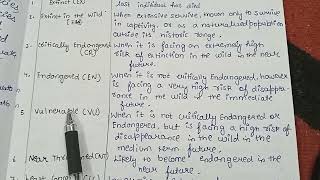 1. Extinct (EX) last individual has died
2. Extinct in the Wild (EW) When extensive survive, known only to survive
in captivity, or as a naturalised population
outside its historic range.
3. Critically Endangered (CR) When it is facing an extremely high
risk of extinction in the wild in the near
future.
4. Endangered (EN) When it is not critically Endangered, however
is facing a very high risk of disappea-
rance in the wild in the immediate
future.
5 Vulnerable (VU) When it is not critically Endangered or
Endangered, but is facing a high risk of
disappearance in the wild in the
medium term future.
6 Near Threatened (NT) Likely to become endangered in the
near future.